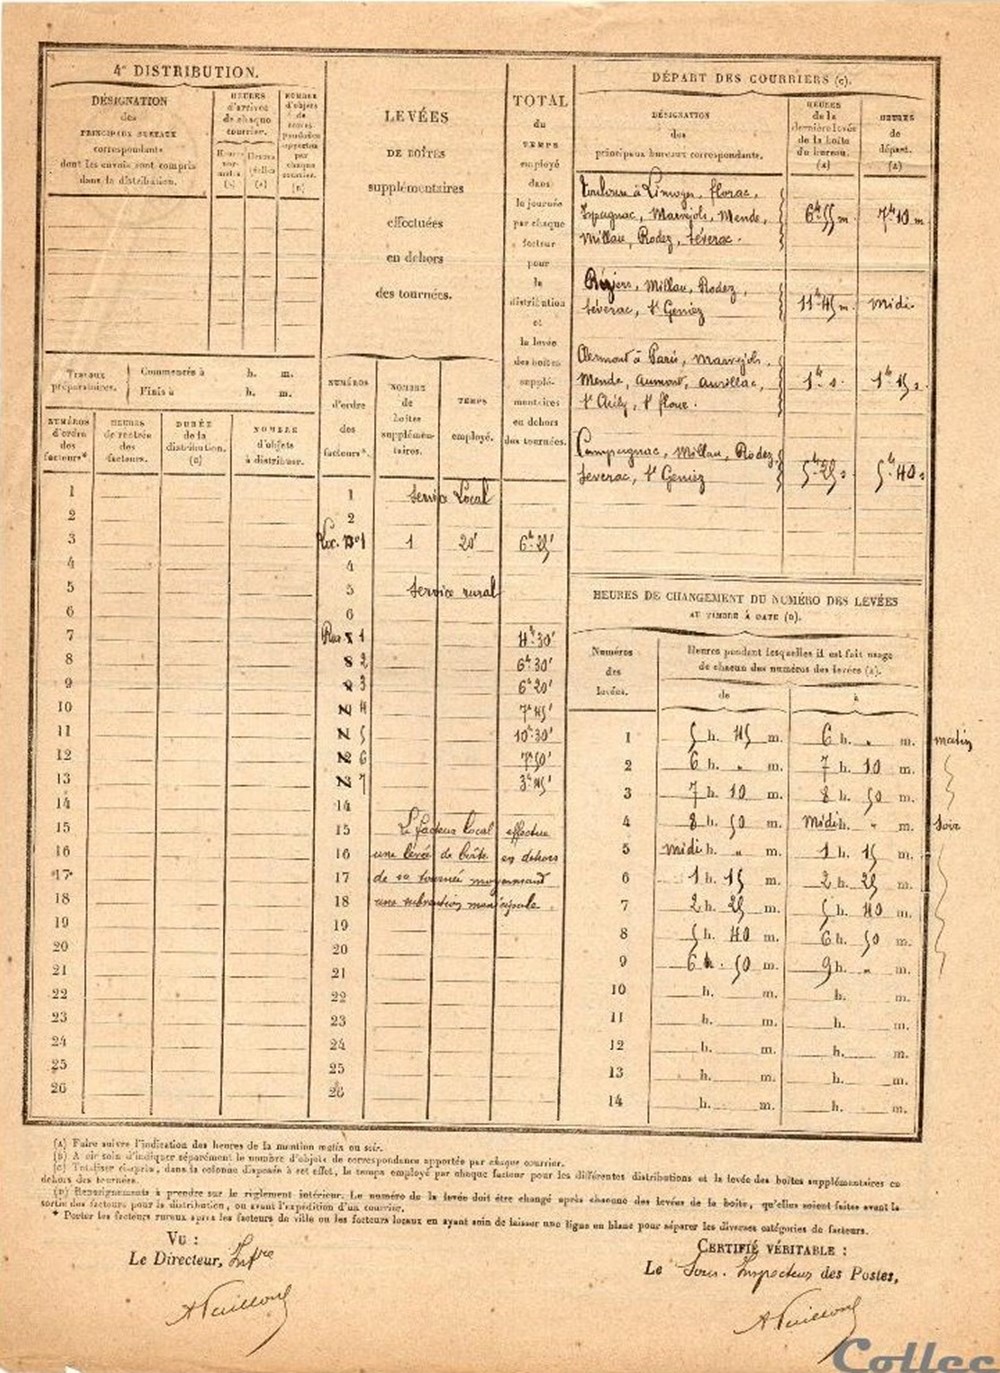 4e DISTRIBUTION.
DÉSIGNATION
des
PRINCIPAUX BUREAUX
correspondants
dont les envois sont compris
dans la distribution.
HEURES
d'arrivée
de chaque
courrier.
NOMBRE
d'objets
de
chaque
courrier.
(B)
Travaux
préparatoires.
Commencés à h. m.
Finis à h. m.
NUMÉROS
d'ordre
des
facteurs*
HEURES
de rentrée
des
facteurs.
DURÉE
de la
distribution.
(C)
NOMBRE
d'objets
à distribuer.
1
2
3
4
5
6
7
8
9
10
11
12
13
14
15
16
17
18
19
20
21
22
23
24
25
26
LEVÉES
DE BOÎTES
supplémentaires
effectuées
en dehors
des tournées.
TOTAL
du
TEMPS
employé
dans
la journée
par chaque
facteur
pour
la
distribution
et
la levée
des boîtes
supplé-
mentaires
en dehors
des tournées.
NUMÉROS
d'ordre
des
facteurs*.
NOMBRE
de
boîtes
supplémen-
taires.
TEMPS
employé.
1 Service Local
2
Loc. no 1 1 20' 6h 25'
4
5 Service rural
6
Rur 1 4h 30'
2 6h 30'
3 6h 20'
4 7h 45'
5 10h 30'
6 7h 50'
7 3h 45'
14
15 Le facteur local effectue
16 une levée de boîte en dehors
17 de sa tournée moyennant
18 une subvention municipale.
19
20
21
22
23
24
25
26
DÉPART DES COURRIERS (C).
DÉSIGNATION
des
principaux bureaux correspondants.
HEURES
de la
dernière levée
de la boîte
du bureau.
(A)
HEURES
de
départ.
(A)
Toulouse à Limoges, Florac,
Ispagnac, Marvejols, Mende, 6h 55 m. 7h 10 m
Millau, Rodez, Séverac.
Béziers, Millau, Rodez,
Séverac, St Geniez 11h 45 m. Midi
Clermont à Paris, Marvejols,
Mende, Aumont, Aurillac, 1h s. 1h 15 s
St Chély, St Flour.
Campagnac, Millau, Rodez,
Séverac, St Geniez 5h 25 s 5h 40 s
HEURES DE CHANGEMENT DU NUMÉRO DES LEVÉES
AU TIMBRE À DATE (D).
Numéros
des
levées.
Heures pendant lesquelles il est fait usage
de chacun des numéros des levées (A).
de à
1 5 h. 45 m. 6 h. " m. matin
2 6 h. " m. 7 h. 10 m.
3 7 h. 10 m. 8 h. 50 m.
4 8 h. 50 m. Midi h. " m. Soir
5 midi h. " m. 1 h. 15 m.
6 1 h. 15 m. 2 h. 25 m.
7 2 h. 25 m. 5 h. 40 m.
8 5 h. 40 m. 6 h. 50 m.
9 6 h. 50 m. 9 h. " m.
10 h. m. h. m.
11 h. m. h. m.
12 h. m. h. m.
13 h. m. h. m.
14 h. m. h. m.
(A) Faire suivre l'indication des heures de la mention matin ou soir.
(B) Avoir soin d'indiquer séparément le nombre d'objets de correspondance apportée par chaque courrier.
(C) Totaliser ci-après, dans la colonne disposée à cet effet, le temps employé par chaque facteur pour les différentes distributions et la levée des boîtes supplémentaires en
dehors des tournées.
(D) Renseignements à prendre sur le règlement intérieur. Le numéro de la levée doit être changé après chacune des levées de la boîte, qu'elles soient faites avant la
sortie des facteurs pour la distribution, ou avant l'expédition d'un courrier.
* Porter les facteurs ruraux après les facteurs de ville ou les facteurs locaux en ayant soin de laisser une ligne en blanc pour séparer les diverses catégories de facteurs.
Vu :
Le Directeur,
CERTIFIÉ VÉRITABLE :
Le Sous-Inspecteur des Postes,
Collec